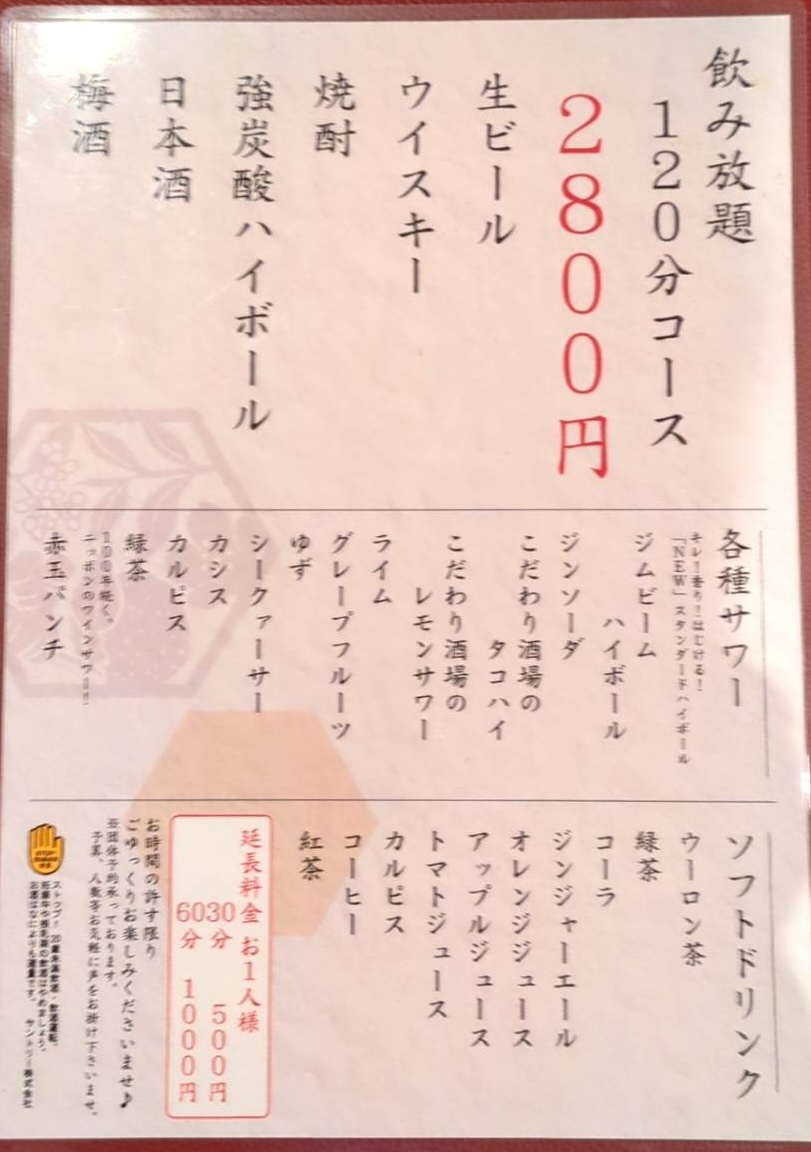 飲み放題
120分コース
2800円
生ビール
ウイスキー
焼酎
強炭酸ハイボール
日本酒
梅酒
各種サワー
キレ!香り!はじける!
「NEW」スタンダードハイボール
ジムビーム
ハイボール
ジンソーダ
こだわり酒場の
タコハイ
こだわり酒場の
レモンサワー
ライム
グレープフルーツ
ゆず
シークァーサー
カシス
カルピス
緑茶
100年続く、
ニッポンのワインサワー!!
赤玉パンチ
ソフトドリンク
ウーロン茶
緑茶
コーラ
ジンジャーエール
オレンジジュース
アップルジュース
トマトジュース
カルピス
コーヒー
紅茶
延長料金 お1人様
30分 500円
60分 1000円
お時間の許す限り
ごゆっくりお楽しみくださいませ♪
※団体予約承っております。
予算、人数等お気軽に声をお掛け下さいませ。
ストップ!20歳未満飲酒・飲酒運転。
妊娠中や授乳期の飲酒はやめましょう。
お酒はなによりも適量です。 サントリー株式会社